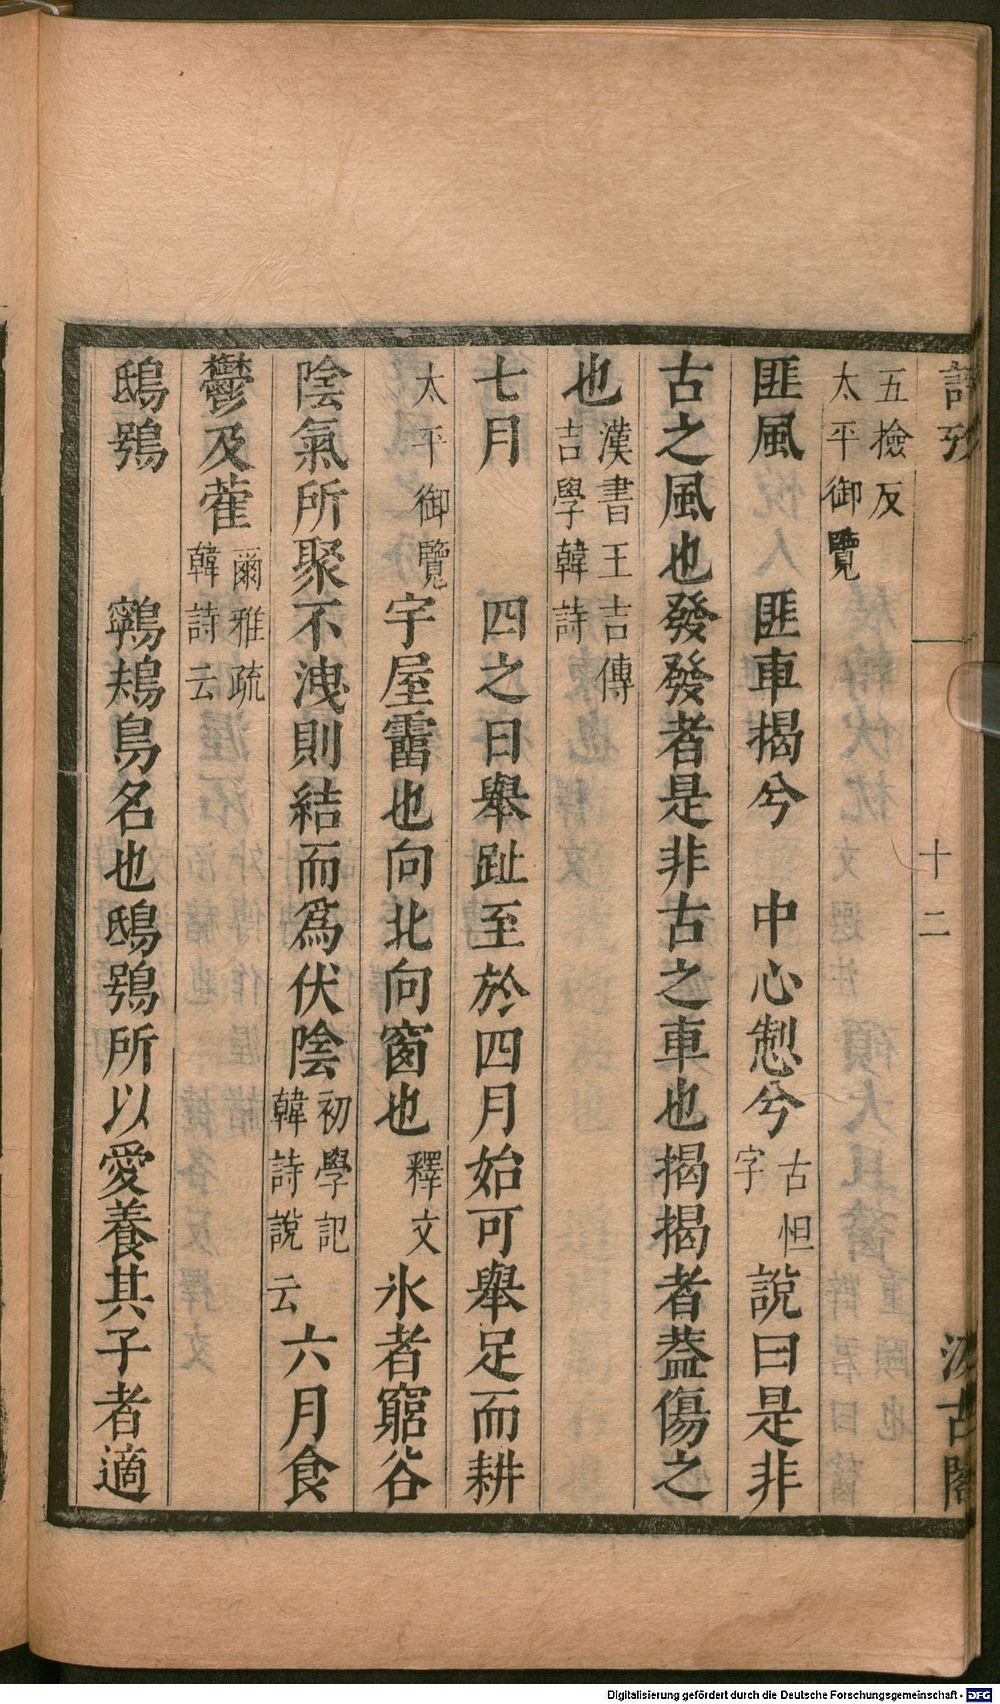 詩攷
十二
汲古閣
五撿反
太平御覽
匪風 匪車揭兮 中心䙺兮 古怛字 說曰是非
古之風也發發者是非古之車也揭揭者葢傷之
也 漢書王吉傳 吉學韓詩
七月 四之日舉趾至於四月始可舉足而耕
太平御覽 宇屋霤也向北向窗也 釋文 氷者窮谷
陰氣所聚不洩則結而爲伏陰 初學記 韓詩說云 六月食
鬱及藿 爾雅疏 韓詩云
鴟鴞 鸋鴂鳥名也鴟鴞所以愛養其子者適
Digitalisierung gefördert durch die Deutsche Forschungsgemeinschaft - DFG